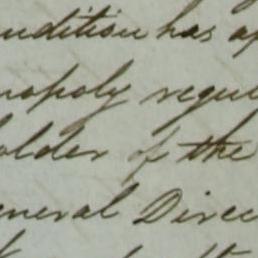 ndition has ap
nopoly regul
older of the
eneral Direc